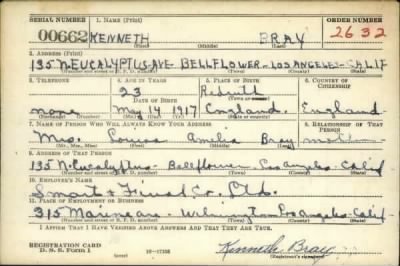 SERIAL NUMBER 1. NAME (Print) ORDER NUMBER
00662 KENNETH BRAY 2632
2. ADDRESS (Print)
135 N. EUCALYPTUS AVE BELLFLOWER - LOS ANGELES - CALIF
3. TELEPHONE 4. AGE IN YEARS 5. PLACE OF BIRTH 6. COUNTRY OF CITIZENSHIP
23 Redruth
DATE OF BIRTH
none May 14 1917 England England
7. NAME OF PERSON WHO WILL ALWAYS KNOW YOUR ADDRESS 8. RELATIONSHIP OF THAT PERSON
Mrs. Louisa Amelia Bray mother
9. ADDRESS OF THAT PERSON
135 N. Eucalyptus Bellflower Los Angeles Calif
10. EMPLOYER'S NAME
Co. Ltd.
11. PLACE OF EMPLOYMENT OR BUSINESS
315 Marine ave. Wilmington Los Angeles - Calif -
I AFFIRM THAT I HAVE VERIFIED ABOVE ANSWERS AND THAT THEY ARE TRUE.
REGISTRATION CARD
D. S. S. Form 1 (over) 16-17105 Kenneth Bray
(Registrant's signature)